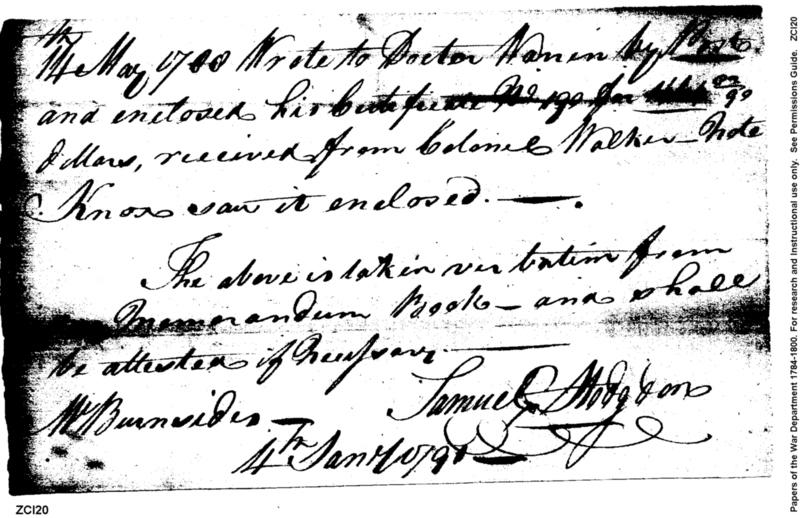 14th May 1788 Wrote to Doctor by Post
and enclosed his Certificate No 190 for 90
dollars, received from Colonel Walker - Note
Knox saw it enclosed.
The above is taken verbatim from
Memorandum Book - and shall
be attested if Necessary.
Mr Burnsides
Samuel Hodgdon
4th Jany 1790
ZCI20
Papers of the War Department 1784-1800. For research and Instructional use only. See Permissions Guide. ZCI20